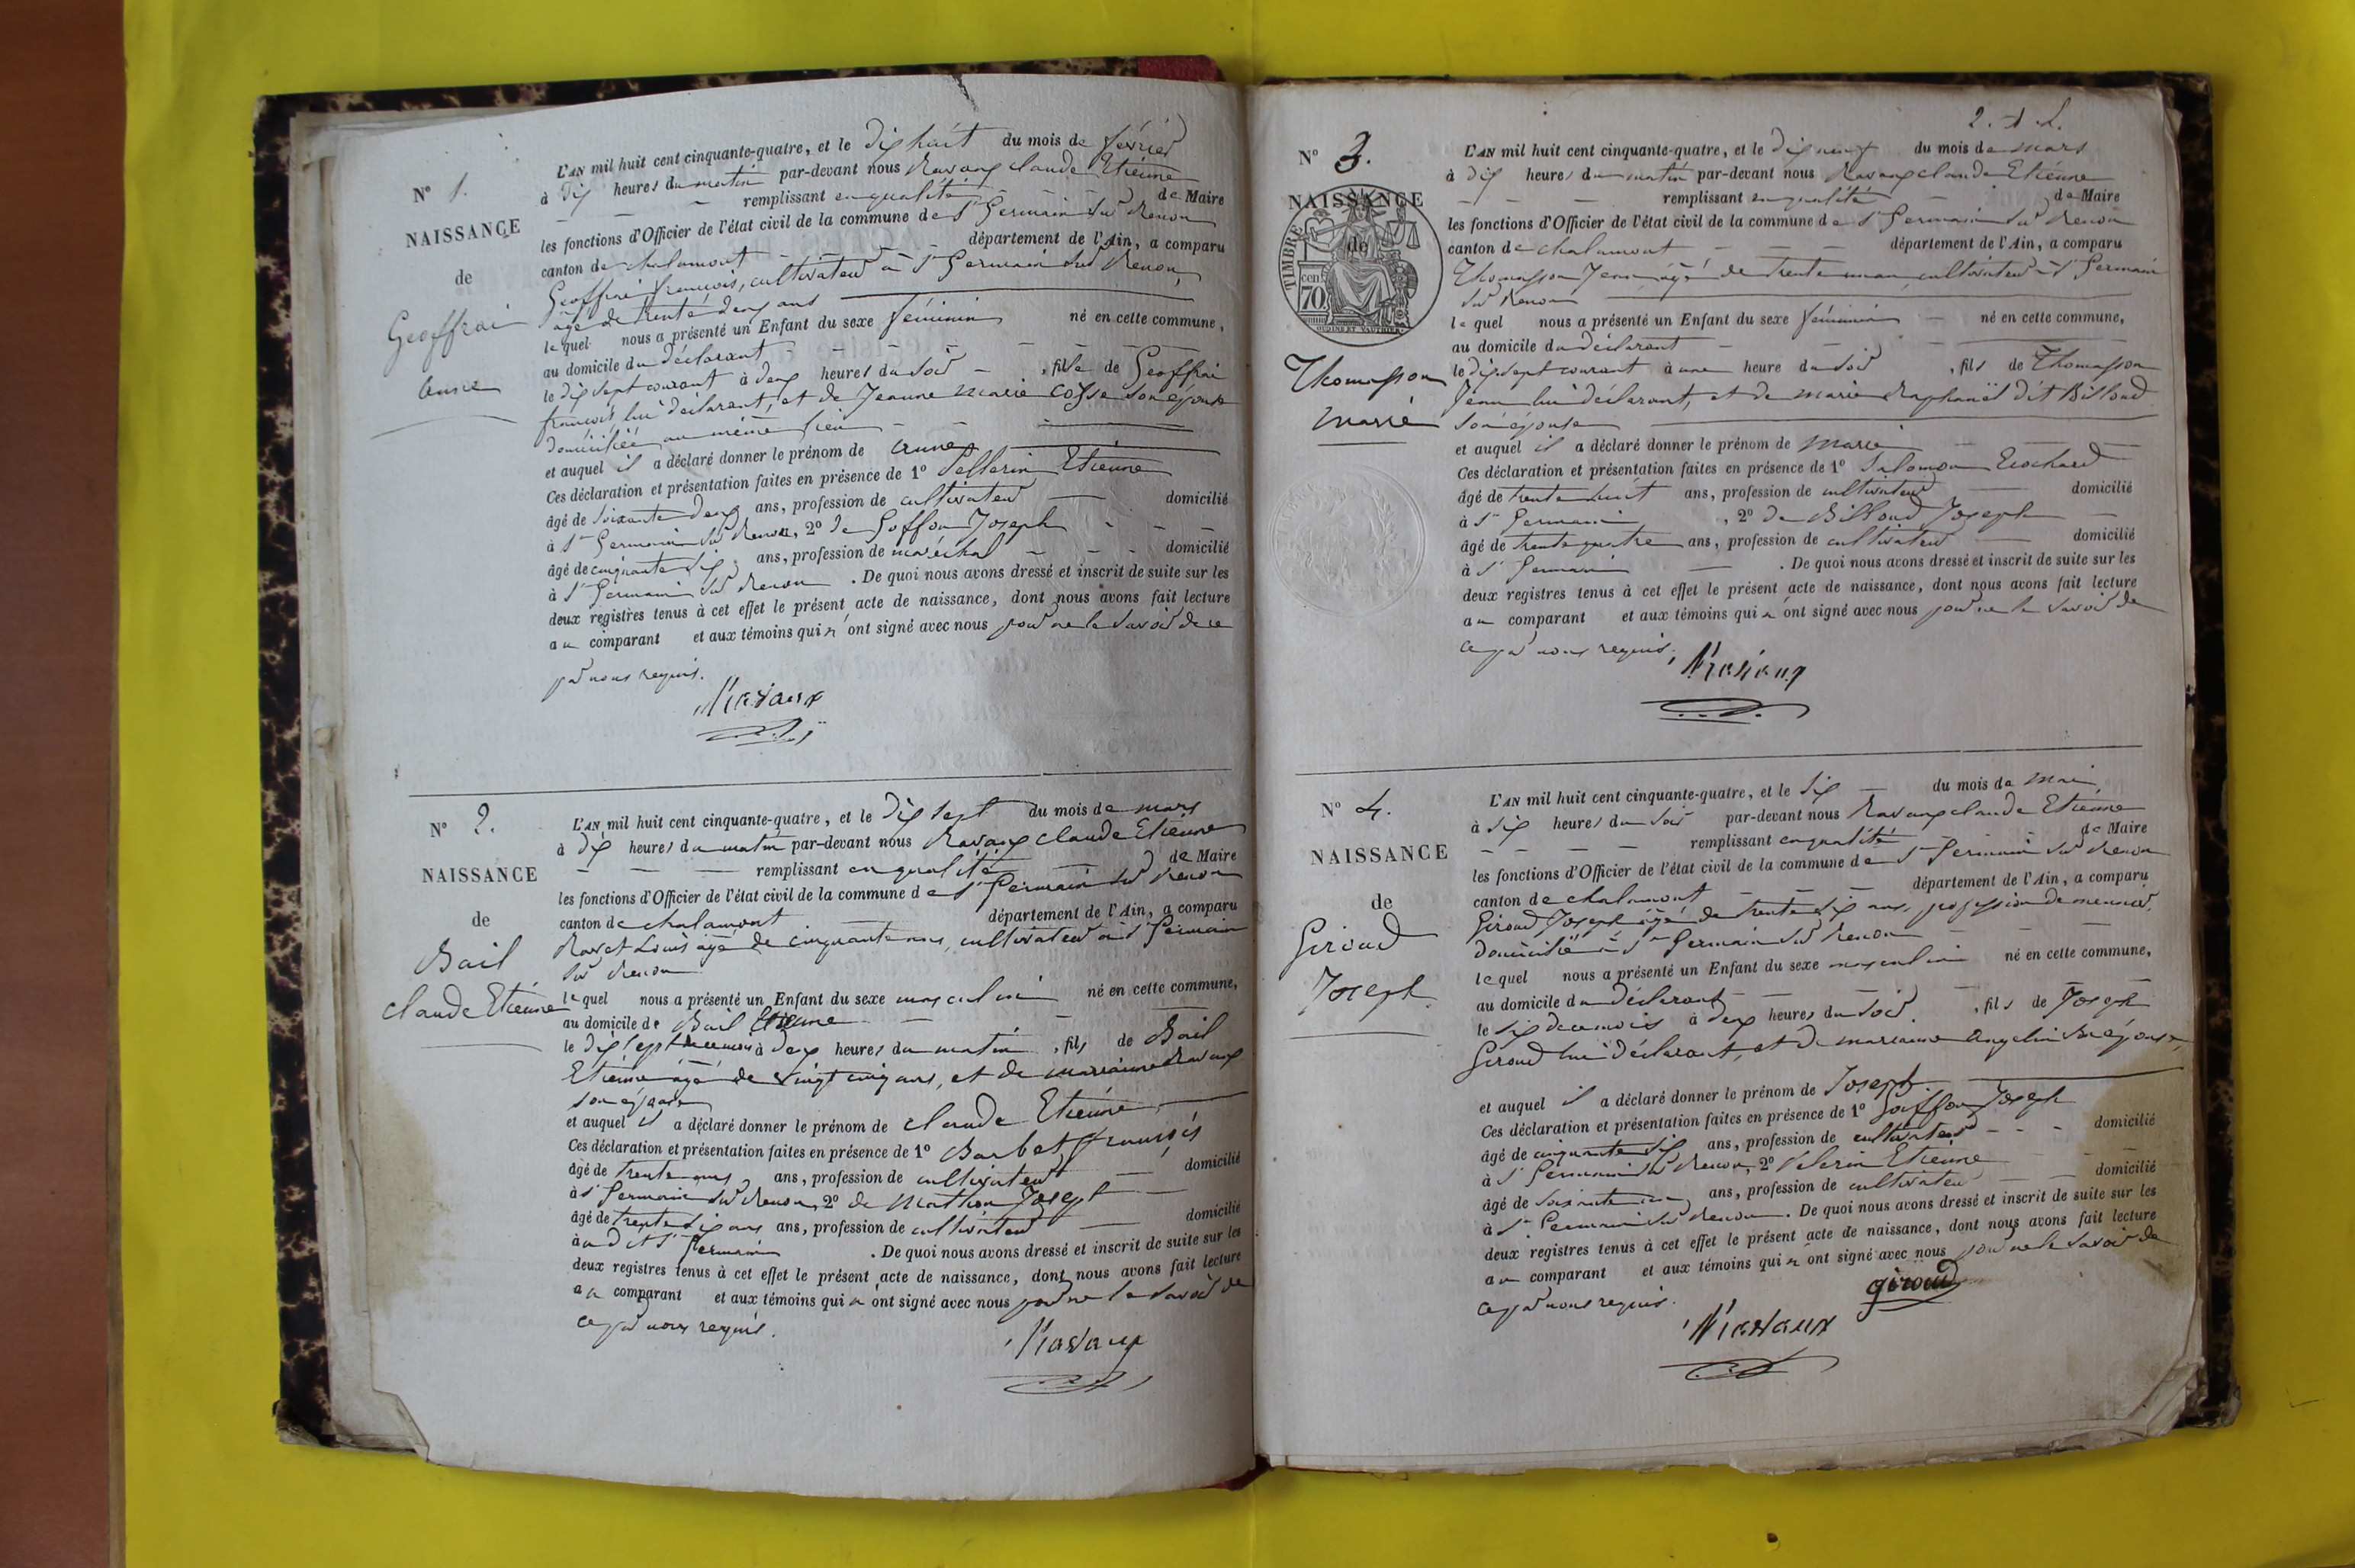 N° 1.
NAISSANCE
de
Geoffrai
Anne
L'AN mil huit cent cinquante-quatre, et le dix huit du mois de février
à dix heures du matin par-devant nous Ravaux claude Etienne
remplissant en qualité de Maire
les fonctions d'Officier de l'état civil de la commune de St Germain sur Renon
canton de chalamont département de l'Ain, a comparu
Geoffrai françois, cultivateur à St Germain sur Renon,
âgé de trente deux ans
lequel nous a présenté un Enfant du sexe féminin né en cette commune,
au domicile du déclarant
le dix sept courant à deux heures du soir, fille de Geoffrai
françois, lui déclarant, et de Jeanne Marie Cosse son épouse
domiciliée au même lieu
et auquel il a déclaré donner le prénom de anne
Ces déclaration et présentation faites en présence de 1° Pellerin Etienne
âgé de soixante deux ans, profession de cultivateur domicilié
à St Germain sur Renon, 2° de Goffon Joseph
âgé de cinquante six ans, profession de maréchal domicilié
à St Germain sur Renon. De quoi nous avons dressé et inscrit de suite sur les
deux registres tenus à cet effet le présent acte de naissance, dont nous avons fait lecture
au comparant et aux témoins qui n'ont signé avec nous pour ne le savoir de ce
par nous requis.
Ravaux
N° 2.
NAISSANCE
de
Bail
claude Etienne
L'AN mil huit cent cinquante-quatre, et le dix sept du mois de mars
à dix heures du matin par-devant nous Ravaux claude Etienne
remplissant en qualité de Maire
les fonctions d'Officier de l'état civil de la commune de St Germain sur Renon
canton de chalamont département de l'Ain, a comparu
Ravet Louis âgé de cinquante ans, cultivateur à St Germain
sur Renon
lequel nous a présenté un Enfant du sexe masculin né en cette commune,
au domicile de Bail Etienne
le dix sept de ce mois à deux heures du matin, fils de Bail
Etienne âgé de vingt cinq ans, et de marianne Ravaux
son épouse
et auquel il a déclaré donner le prénom de claude Etienne
Ces déclaration et présentation faites en présence de 1° Barbet françois
âgé de trente ans, profession de cultivateur domicilié
à St Germain sur Renon, 2° de Mathon Joseph
âgé de trente six ans ans, profession de cultivateur domicilié
à udit St Germain. De quoi nous avons dressé et inscrit de suite sur les
deux registres tenus à cet effet le présent acte de naissance, dont nous avons fait lecture
au comparant et aux témoins qui n'ont signé avec nous pour ne le savoir de
ce par nous requis.
Ravaux
N° 3.
NAISSANCE
de
TIMBRE
cen 70
Thomasson
Marie
L'AN mil huit cent cinquante-quatre, et le dix neuf du mois de mars
à dix heures du matin par-devant nous Ravaux claude Etienne
remplissant en qualité de Maire
les fonctions d'Officier de l'état civil de la commune de St Germain sur Renon
canton de chalamont département de l'Ain, a comparu
Thomasson Jean, âgé de trente un an, cultivateur à St Germain
sur Renon
lequel nous a présenté un Enfant du sexe féminin né en cette commune,
au domicile du déclarant
le dix sept courant à une heure du soir, fils de Thomasson
Jean lui déclarant, et de marie Raphaël dit Billoud
son épouse
et auquel il a déclaré donner le prénom de Marie
Ces déclaration et présentation faites en présence de 1° Salomon
âgé de trente huit ans, profession de cultivateur domicilié
à St Germain, 2° de Billoud Joseph
âgé de trente quatre ans, profession de cultivateur domicilié
à St Germain. De quoi nous avons dressé et inscrit de suite sur les
deux registres tenus à cet effet le présent acte de naissance, dont nous avons fait lecture
au comparant et aux témoins qui n'ont signé avec nous pour ne le savoir de
ce par nous requis.
Ravaux
N° 4.
NAISSANCE
de
Giroud
Joseph
L'AN mil huit cent cinquante-quatre, et le six du mois de Mai
à six heures du soir par-devant nous Ravaux claude Etienne
remplissant en qualité de Maire
les fonctions d'Officier de l'état civil de la commune de St Germain sur Renon
canton de chalamont département de l'Ain, a comparu
Giroud Joseph âgé de trente six ans, profession de meunier,
domicilié à St Germain sur Renon
lequel nous a présenté un Enfant du sexe masculin né en cette commune,
au domicile du déclarant
le six de ce mois à deux heures du soir, fils de Joseph
Giroud lui déclarant, et de marianne Angelin son épouse,
et auquel il a déclaré donner le prénom de Joseph
Ces déclaration et présentation faites en présence de 1° Goiffon Joseph
âgé de cinquante six ans, profession de cultivateur domicilié
à St Germain sur Renon, 2° Pelerin Etienne
âgé de soixante ans, profession de cultivateur domicilié
à St Germain sur Renon. De quoi nous avons dressé et inscrit de suite sur les
deux registres tenus à cet effet le présent acte de naissance, dont nous avons fait lecture
au comparant et aux témoins qui n'ont signé avec nous pour ne le savoir de
ce par nous requis.
giroud
Ravaux